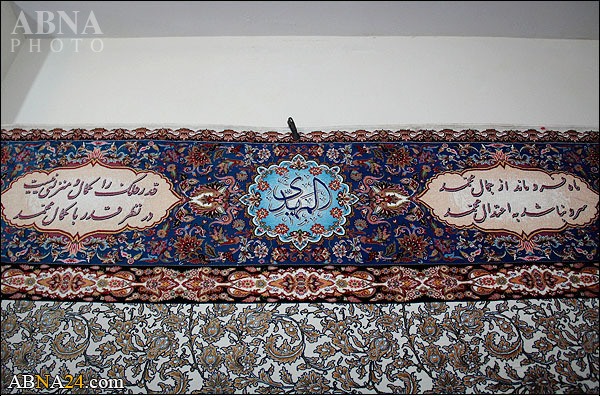 ABNA
PHOTO
ماه فرو ماند از جمال محمد
سرو نباشد به اعتدال محمد
قدر فلک را کمال و منزلتی نیست
در نظر قدر با کمال محمد
ABNA24.com